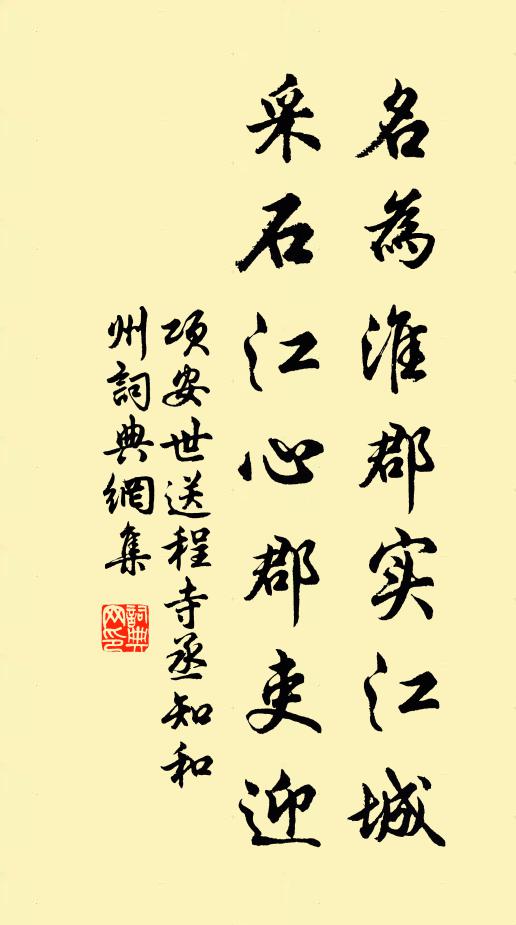 名為淮郡实江城
采石江心郡吏迎
项安世送程寺丞知和
州詞典網集
詞典网印